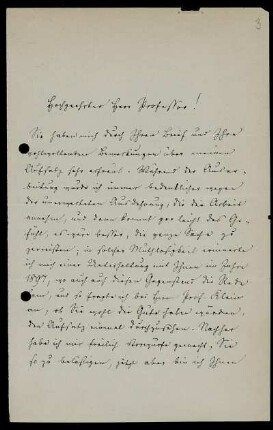 3
Hochgeehrter Herr Professor!
Sie haben mich durch Ihren Brief und Ihre
wohlwollenden Bemerkungen über meinen
Aufsatz sehr erfreut. Während der Ausar-
beitung wurde ich immer bedenklicher wegen
der unerwarteten Ausdehnung, die die Arbeit
annahm, und dann kommt gar leicht das Ge-
fühl, es wäre besser, die ganze Sache zu
zerreissen; in solcher Muthlosigkeit erinnerte
ich mich einer Unterhaltung mit Ihnen im Jahre
1897, wo auch auf diesen Gegenstand die Rede
kam, und so fragte ich bei Herrn Prof. Klein
an, ob Sie wohl die Güte haben würden,
den Aufsatz einmal durchzusehen. Nachher
habe ich mir freilich Vorwürfe gemacht, Sie
so zu belästigen, jetzt aber bin ich Ihnen